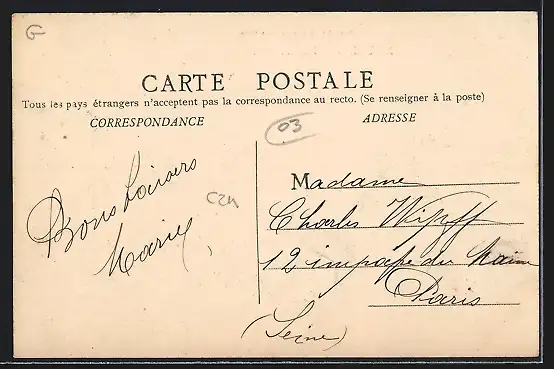 G
CARTE POSTALE
Tous les pays étrangers n'acceptent pas la correspondance au recto. (Se renseigner à la poste)
CORRESPONDANCE
ADRESSE
03
Bons baisers
Marie
C24
Madame
Charles Wipff
12 impasse du Maine
Paris
(Seine)